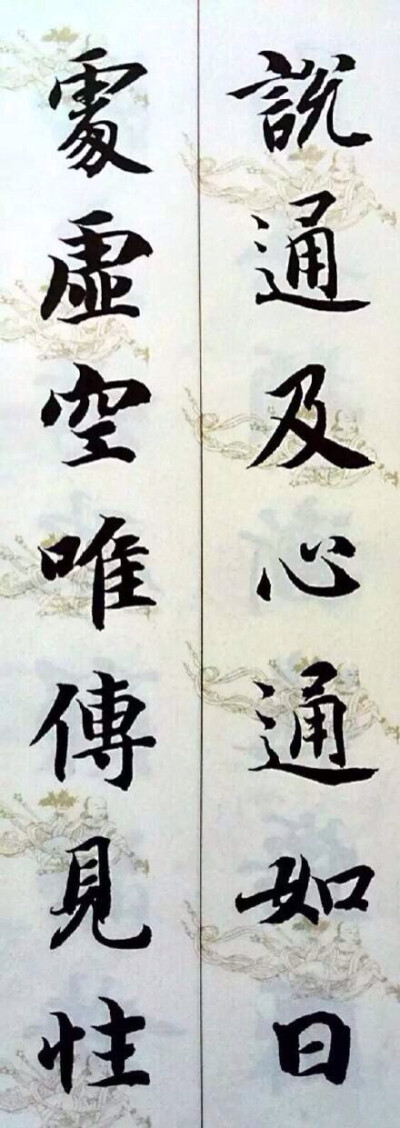 說通及心通如日
處虛空唯傳見性